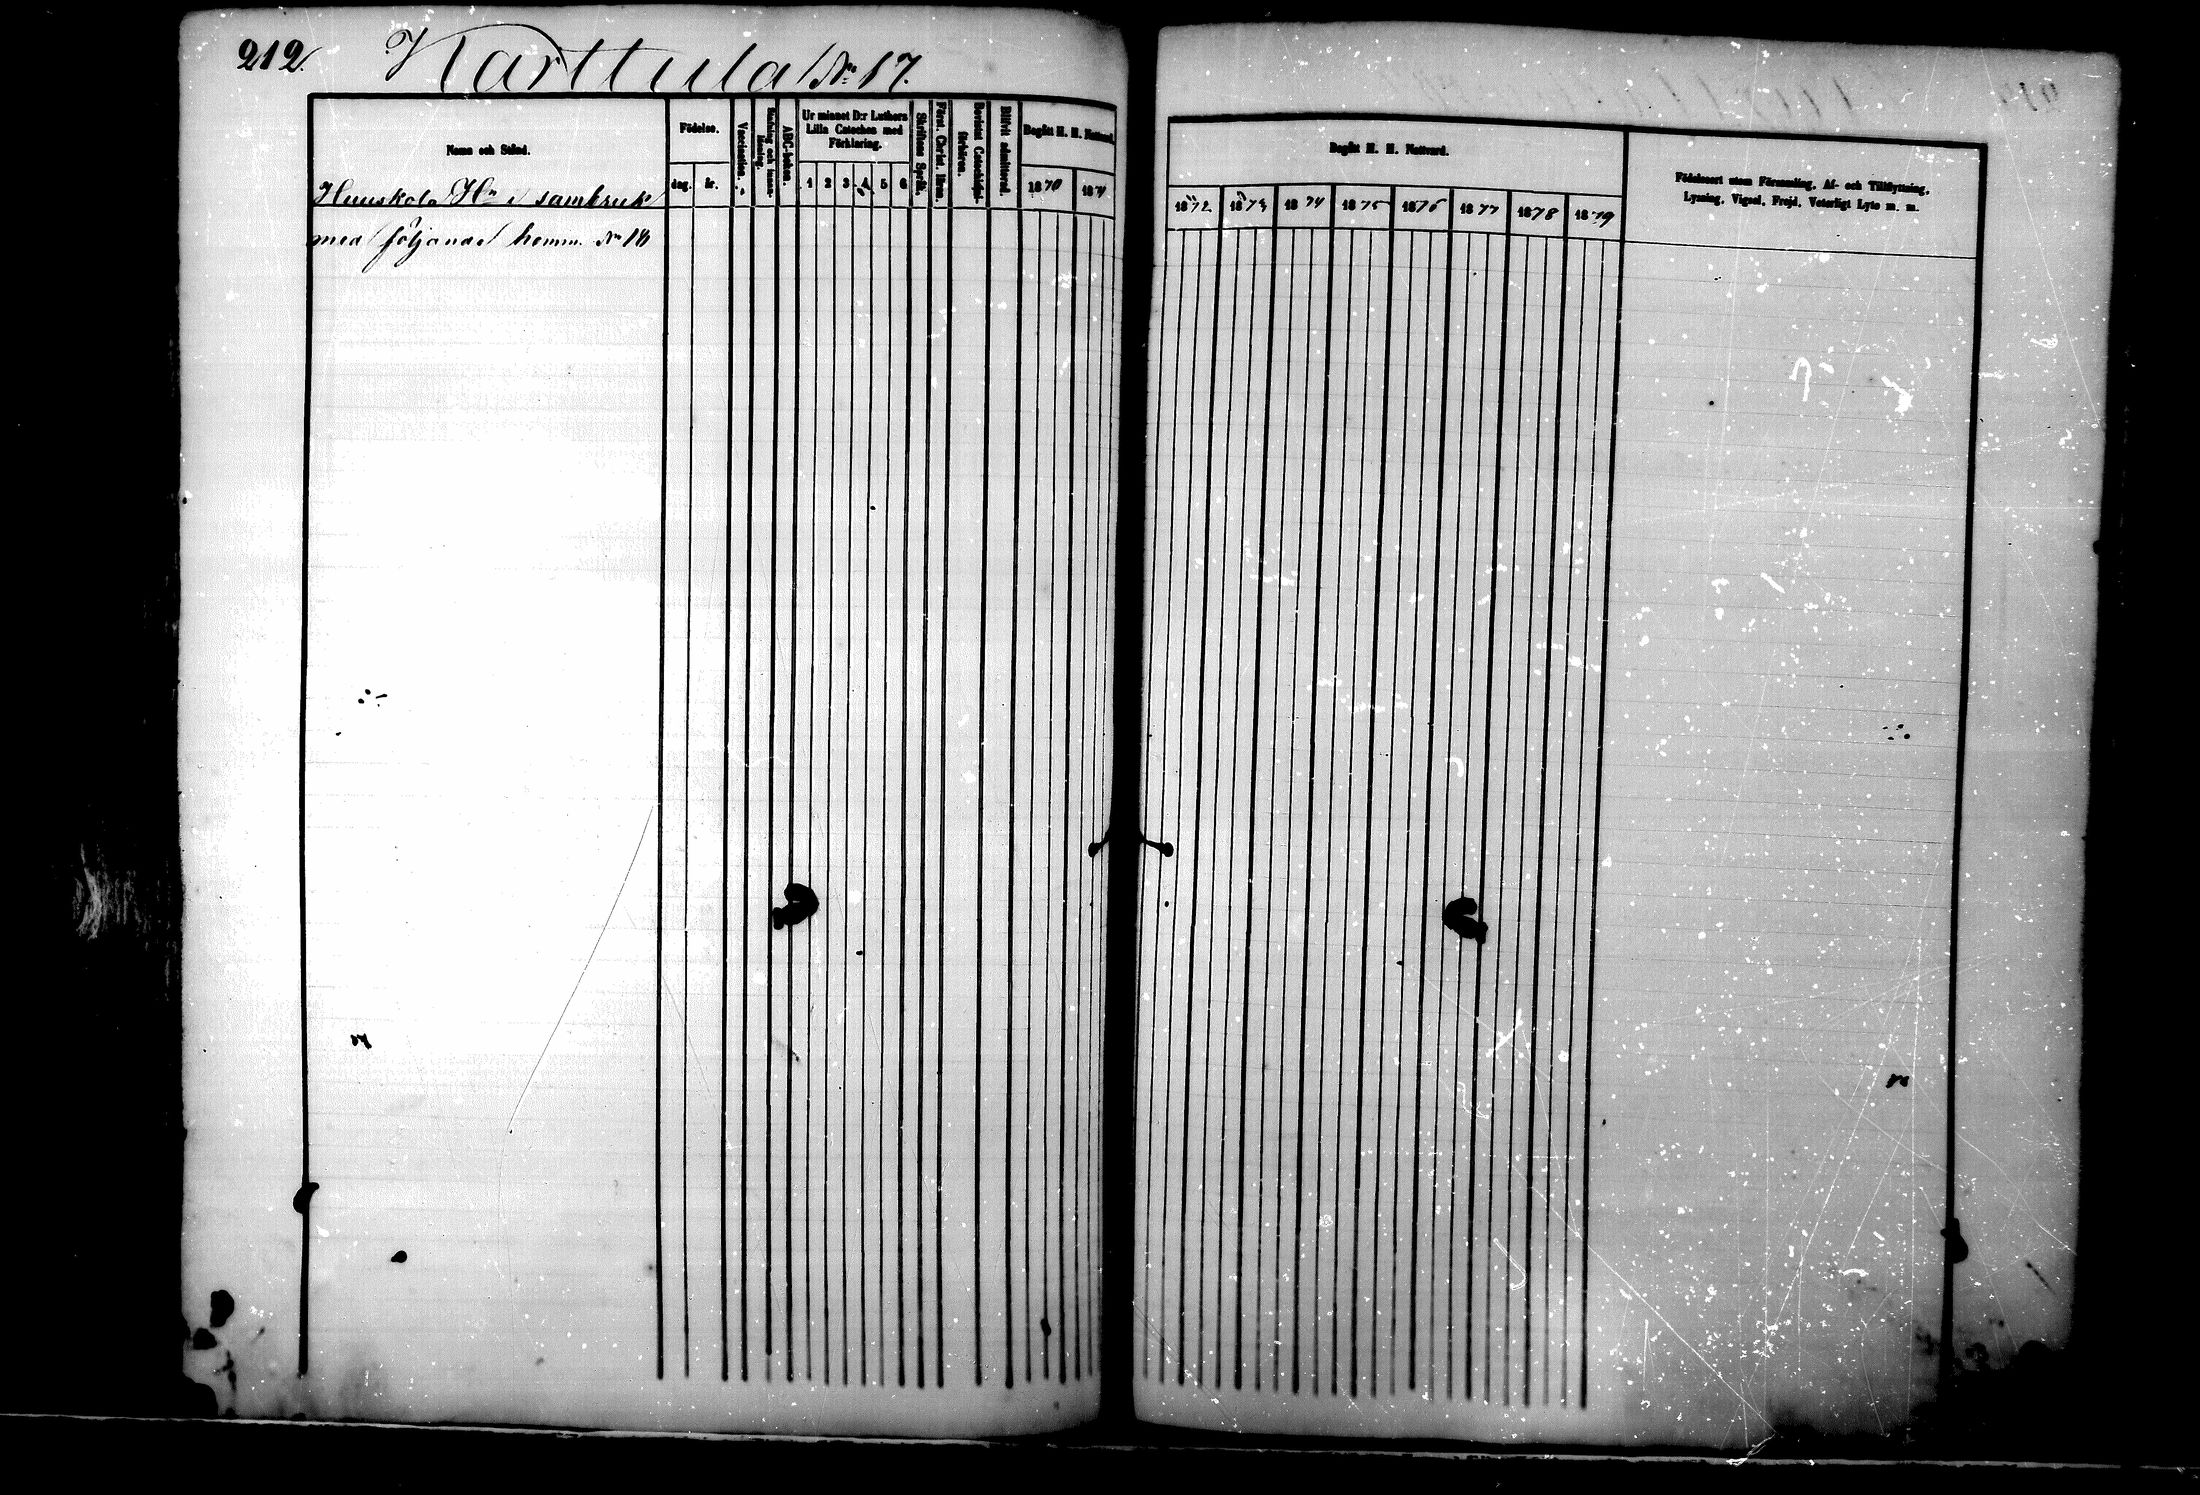 212.
Karttula No 17.
Namn och Stånd.
Födelse.
dag.
år.
Vaccination.
ABC-boken.
Ur minnet D:r Luthers
Lilla Cateches med
Förklaring.
1 2 3 4 5 6
Skriftens Språk.
Först. Christ. läran.
Bevistat Catechismi-
förhören.
Blifvit admitterad.
Begått H. H. Nattvard.
1870 1871
Huuskola Hn i sambruk
med följande hemm. No 18
Begått H. H. Nattvard.
1872 1873 1874 1875 1876 1877 1878 1879
Födelseort utom Församling, Af- och Tillflyttning,
Lysning, Vigsel, Frejd, Veterligt Lyte m. m.